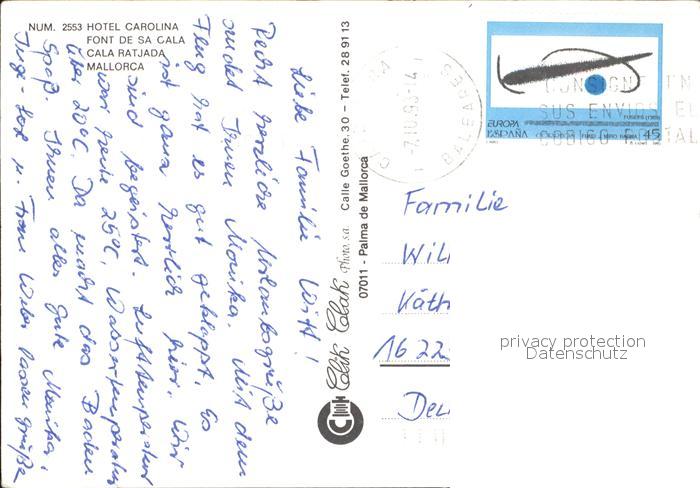 NUM. 2553 HOTEL CAROLINA
FONT DE SA CALA
CALA RATJADA
MALLORCA
Liebe Familie Witt!
Recht herzliche Urlaubsgrüße
sendet Ihnen Monika. Mit dem
Flug hat es gut geklappt. Es
ist ganz herrlich hier. Wir
sind begeistert. Lufttemperatur
war heute 25°C, Wassertemperatur
über 20°C. Da macht das Baden
Spaß. Ihnen alles gute Monika!
u. Frau Weber lassen grüßen
Clik Clak Photo, s.a. Calle Goethe, 30 – Telef. 28 91 13
07011 - Palma de Mallorca
BALEARES
CONSIGNE EN
SUS ENVIOS EL
CODIGO POSTAL
EUROPA
ESPAÑA
45
Familie
Wil
Käth
16 22
Deu
privacy protection
Datenschutz